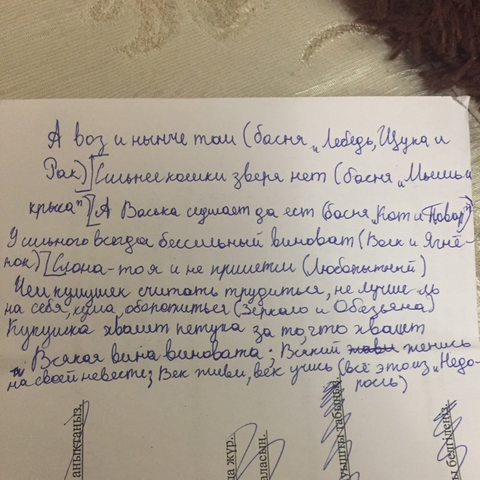 А воз и нынче там (басня „Лебедь, Щука и
Рак) [Сильнее кошки зверя нет (басня „Мышь и
крыса") [А Васька слушает да ест (басня „Кот и Повар")
У сильного всегда бессильный виноват (Волк и Ягнё-
нок) [Слона-то я и не приметил (Любопытный)
Чем кумушек считать трудиться, не лучше ль
на себя, кума, оборотиться (Зеркало и Обезьяна)
Кукушка хвалит петуха за то, что хвалит
Всякая вина виновата; Всякий женись
на своей невесте; Век живи, век учись (всё это из „Недо-
росль)
анықтаңыз.
да жүр..
аласың.
табыңыз.
ы белгіленіз.